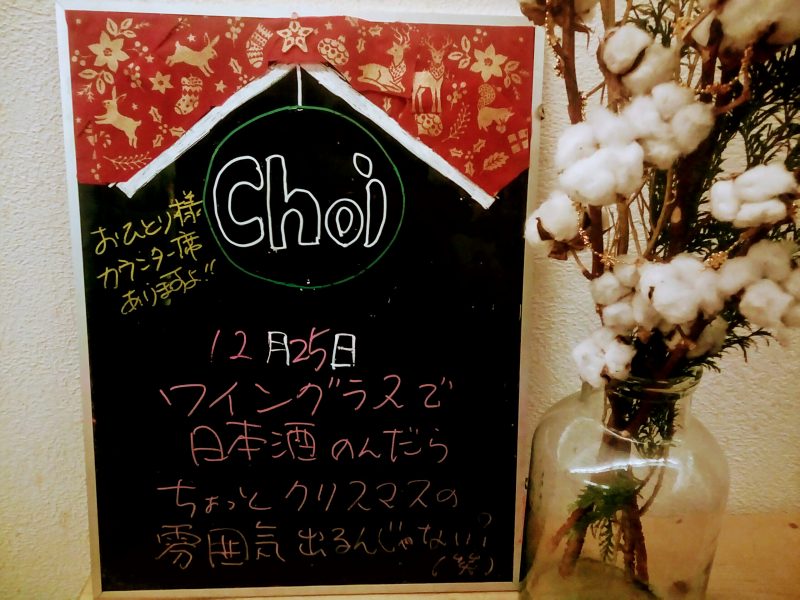 Choi
おひとり様
カウンター席
ありますよ!!
12月25日
ワイングラスで
日本酒のんだら
ちょっとクリスマスの
雰囲気出るんじゃない?
(笑)